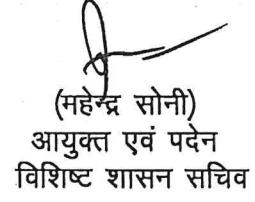 (महेन्द्र सोनी)
आयुक्त एवं पदेन
विशिष्ट शासन सचिव